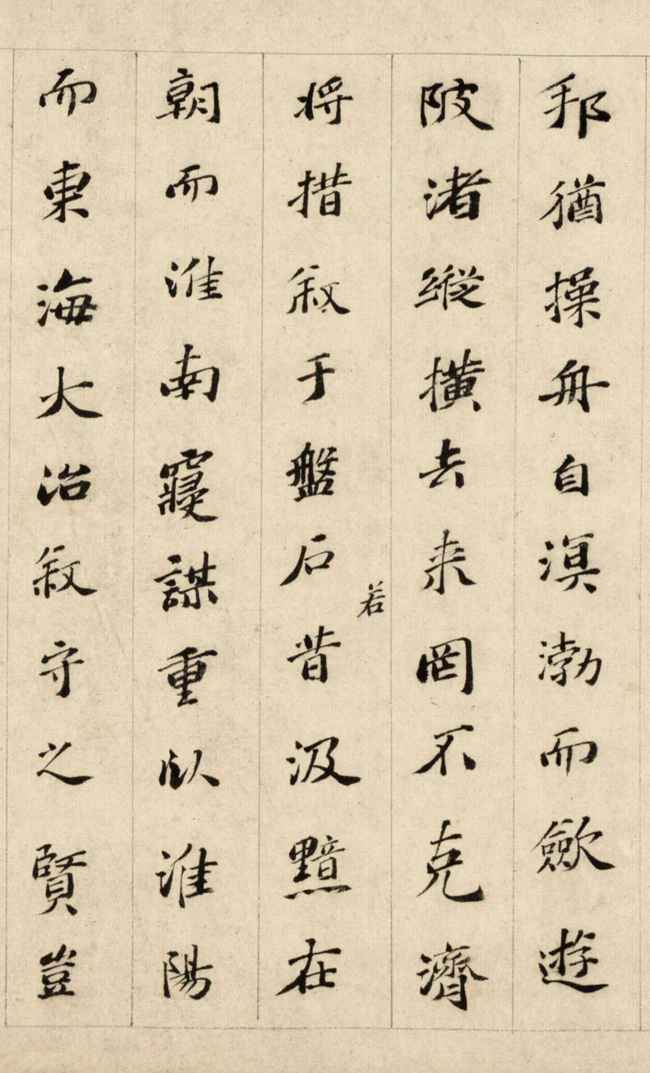 邦猶操舟自溟渤而斂遊
陂渚縱横去来罔不克濟
将措叙于盤石若昔汲黯在
朝而淮南寢謀重臥淮陽
而東海大治叙守之賢豈